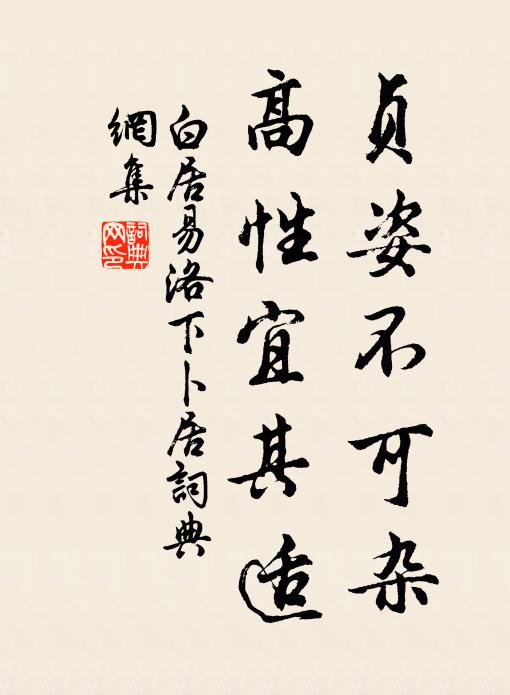 贞姿不可杂
高性宜其适
白居易洛下卜居詞典
網集
詞典
网印